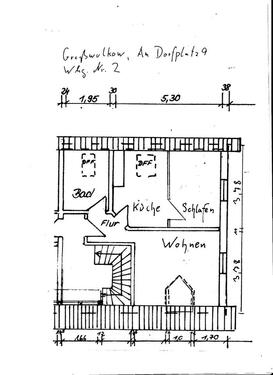 Großwolkow, Am Dorfplatz 9
Whg. Nr. 2
24 1,95 30 5,30 38
DFF DFF
Bad Küche Schlafen
Flur
Wohnen
1,70